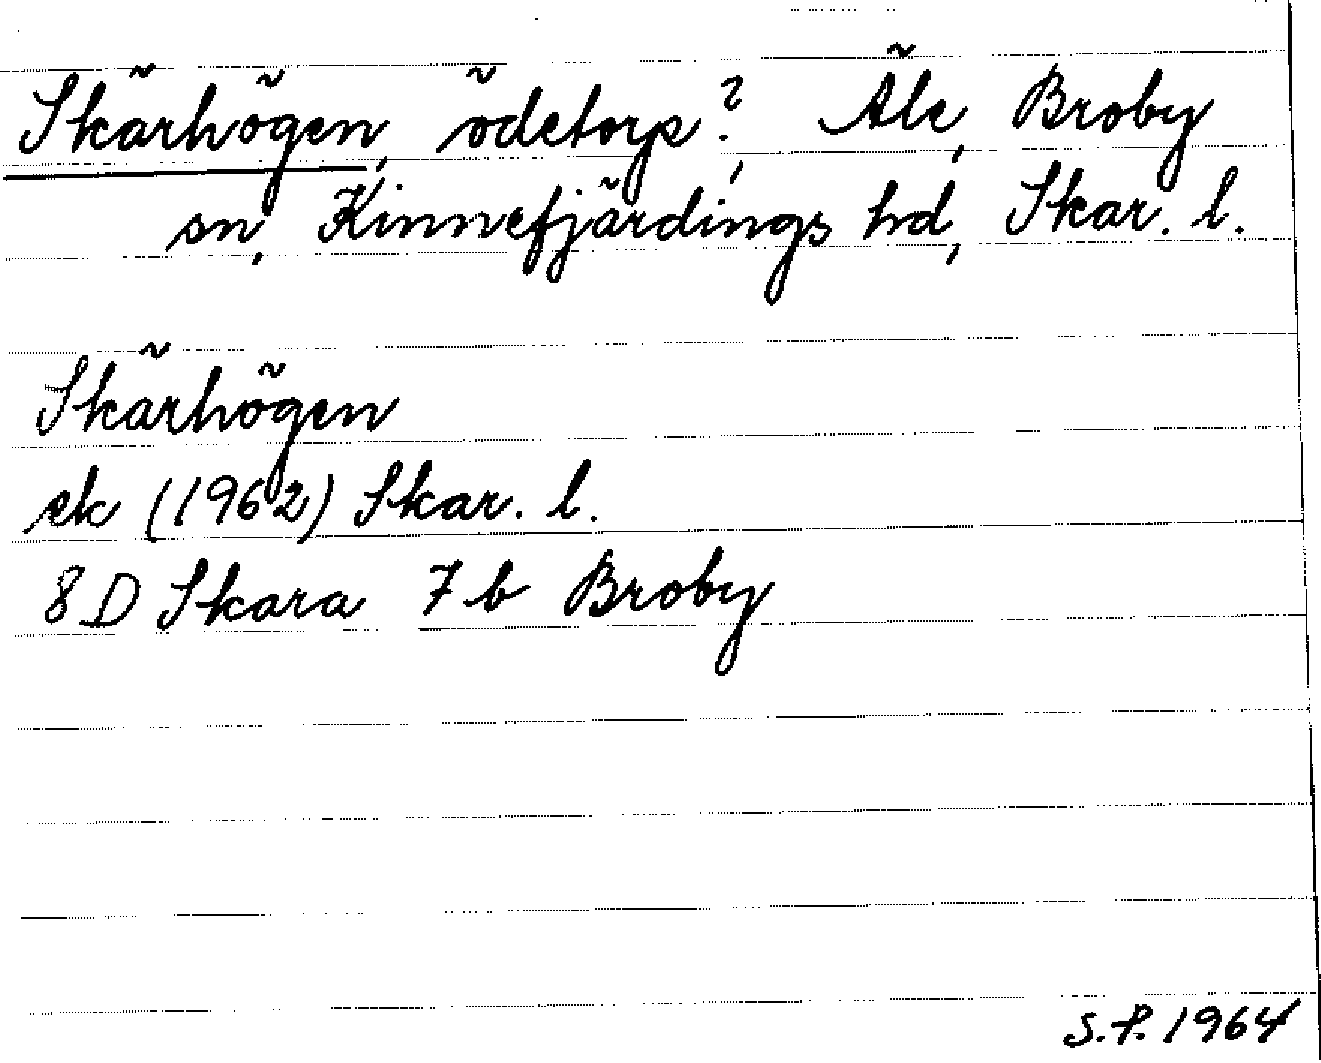 Skärhögen, ödetorp?, Äle, Broby
sn, Kinnefjärdings hd, Skar. l.
Skärhögen
ek (1962) Skar. l.
8 D Skara 7 b Broby
S.P. 1964